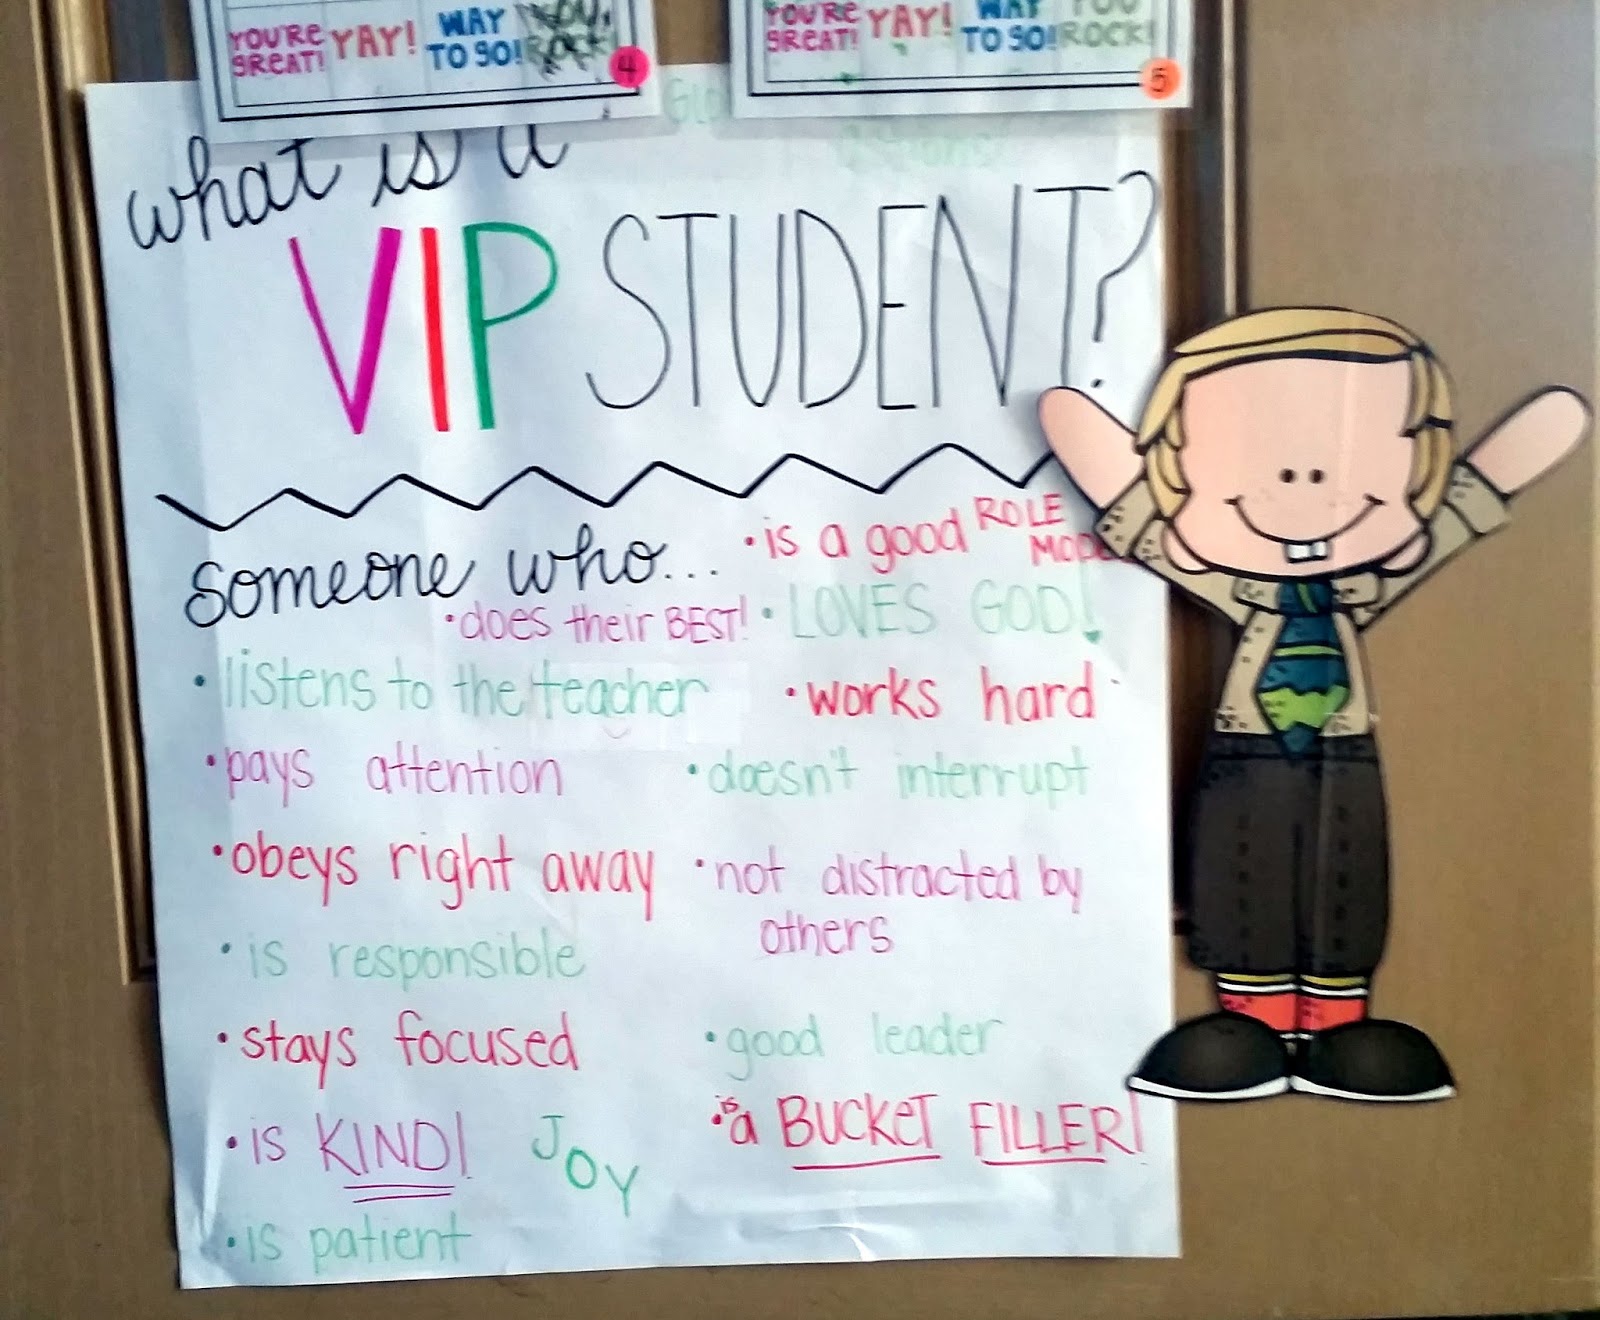 YOU'RE GREAT! YAY! WAY TO GO! YOU ROCK!
4
YOU'RE GREAT! YAY! WAY TO GO! YOU ROCK!
5
what is a
VIP STUDENT?
someone who...
• is a good ROLE
MODEL
• does their BEST!
• LOVES GOD!
• listens to the teacher
• works hard
• pays attention
• doesn't interrupt
• obeys right away
• not distracted by
others
• is responsible
• stays focused
• good leader
• is KIND!
JOY
• is a BUCKET FILLER!
• is patient